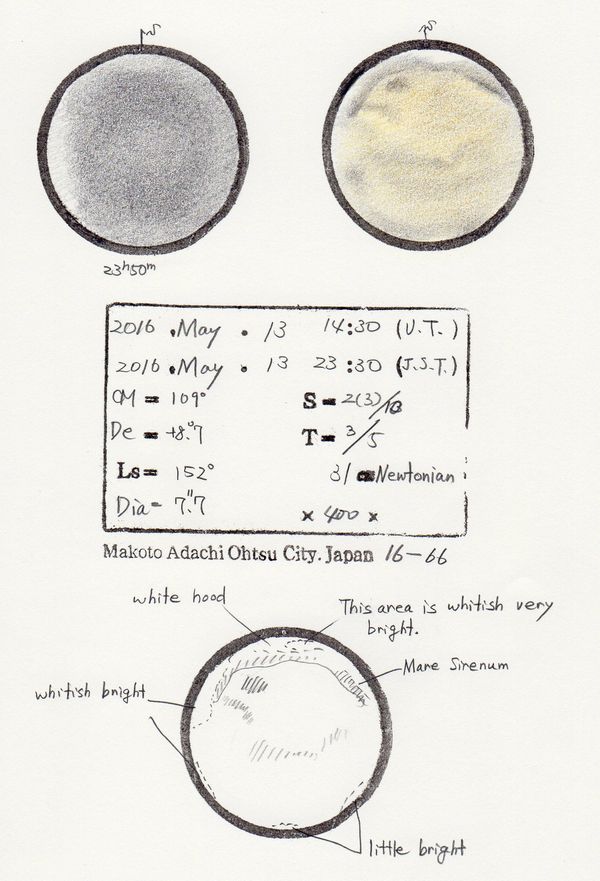 23h50m
2016 . May . 13 14:30 (U.T.)
2016 . May . 13 23:30 (J.S.T.)
CM = 109° S = 2(3)/10
De = +8.°7 T = 3/5
Ls = 152° 31 Newtonian
Dia = 7."7 × 400 ×
Makoto Adachi Ohtsu City. Japan 16-66
white hood
This area is whitish very
bright.
Mare Sirenum
whitish bright
little bright